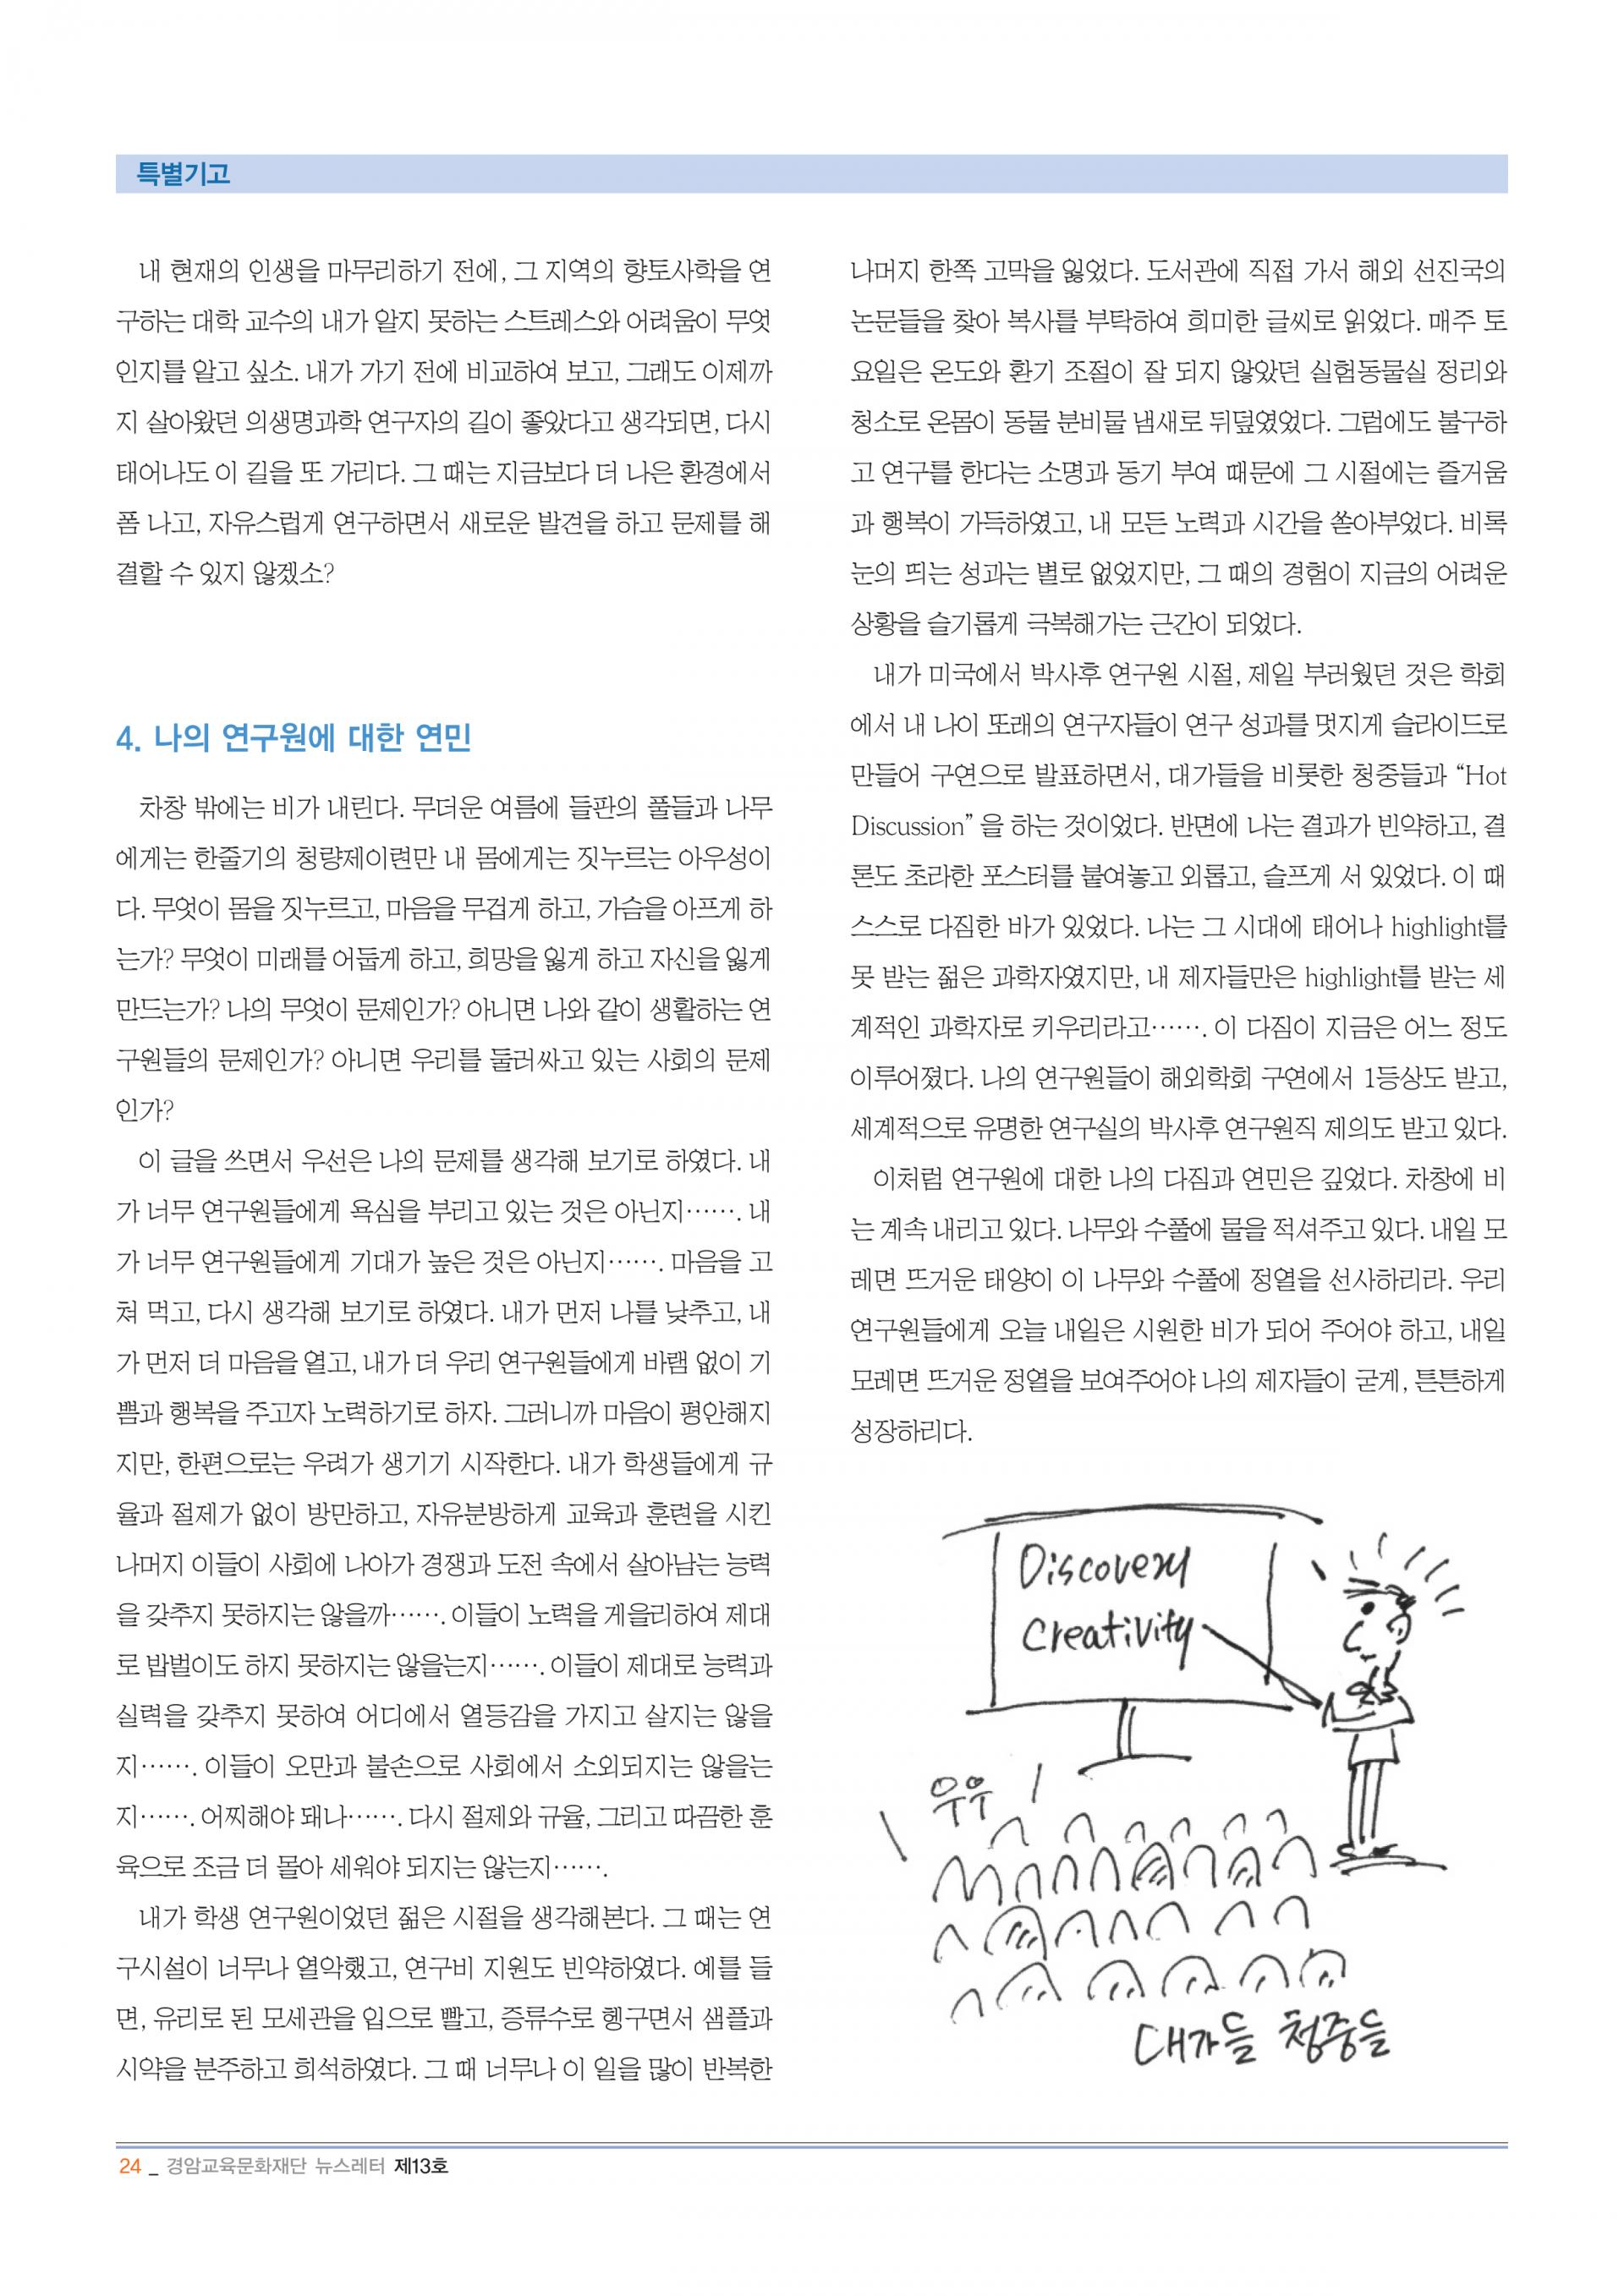 특별기고
내 현재의 인생을 마무리하기 전에, 그 지역의 향토사학을 연
구하는 대학 교수의 내가 알지 못하는 스트레스와 어려움이 무엇
인지를 알고 싶소. 내가 가기 전에 비교하여 보고, 그래도 이제까
지 살아왔던 의생명과학 연구자의 길이 좋았다고 생각되면, 다시
태어나도 이 길을 또 가리다. 그 때는 지금보다 더 나은 환경에서
폼 나고, 자유스럽게 연구하면서 새로운 발견을 하고 문제를 해
결할 수 있지 않겠소?
4. 나의 연구원에 대한 연민
차창 밖에는 비가 내린다. 무더운 여름에 들판의 풀들과 나무
에게는 한줄기의 청량제이련만 내 몸에게는 짓누르는 아우성이
다. 무엇이 몸을 짓누르고, 마음을 무겁게 하고, 가슴을 아프게 하
는가? 무엇이 미래를 어둡게 하고, 희망을 잃게 하고 자신을 잃게
만드는가? 나의 무엇이 문제인가? 아니면 나와 같이 생활하는 연
구원들의 문제인가? 아니면 우리를 둘러싸고 있는 사회의 문제
인가?
이 글을 쓰면서 우선은 나의 문제를 생각해 보기로 하였다. 내
가 너무 연구원들에게 욕심을 부리고 있는 것은 아닌지……. 내
가 너무 연구원들에게 기대가 높은 것은 아닌지……. 마음을 고
쳐 먹고, 다시 생각해 보기로 하였다. 내가 먼저 나를 낮추고, 내
가 먼저 더 마음을 열고, 내가 더 우리 연구원들에게 바램 없이 기
쁨과 행복을 주고자 노력하기로 하자. 그러니까 마음이 평안해지
지만, 한편으로는 우려가 생기기 시작한다. 내가 학생들에게 규
율과 절제가 없이 방만하고, 자유분방하게 교육과 훈련을 시킨
나머지 이들이 사회에 나아가 경쟁과 도전 속에서 살아남는 능력
을 갖추지 못하지는 않을까……. 이들이 노력을 게을리하여 제대
로 밥벌이도 하지 못하지는 않을는지……. 이들이 제대로 능력과
실력을 갖추지 못하여 어디에서 열등감을 가지고 살지는 않을
지……. 이들이 오만과 불손으로 사회에서 소외되지는 않을는
지……. 어찌해야 돼나……. 다시 절제와 규율, 그리고 따끔한 훈
육으로 조금 더 몰아 세워야 되지는 않는지…….
내가 학생 연구원이었던 젊은 시절을 생각해본다. 그 때는 연
구시설이 너무나 열악했고, 연구비 지원도 빈약하였다. 예를 들
면, 유리로 된 모세관을 입으로 빨고, 증류수로 헹구면서 샘플과
시약을 분주하고 희석하였다. 그 때 너무나 이 일을 많이 반복한
나머지 한쪽 고막을 잃었다. 도서관에 직접 가서 해외 선진국의
논문들을 찾아 복사를 부탁하여 희미한 글씨로 읽었다. 매주 토
요일은 온도와 환기 조절이 잘 되지 않았던 실험동물실 정리와
청소로 온몸이 동물 분비물 냄새로 뒤덮였었다. 그럼에도 불구하
고 연구를 한다는 소명과 동기 부여 때문에 그 시절에는 즐거움
과 행복이 가득하였고, 내 모든 노력과 시간을 쏟아부었다. 비록
눈의 띄는 성과는 별로 없었지만, 그 때의 경험이 지금의 어려운
상황을 슬기롭게 극복해가는 근간이 되었다.
내가 미국에서 박사후 연구원 시절, 제일 부러웠던 것은 학회
에서 내 나이 또래의 연구자들이 연구 성과를 멋지게 슬라이드로
만들어 구연으로 발표하면서, 대가들을 비롯한 청중들과 “Hot
Discussion” 을 하는 것이었다. 반면에 나는 결과가 빈약하고, 결
론도 초라한 포스터를 붙여놓고 외롭고, 슬프게 서 있었다. 이 때
스스로 다짐한 바가 있었다. 나는 그 시대에 태어나 highlight를
못 받는 젊은 과학자였지만, 내 제자들만은 highlight를 받는 세
계적인 과학자로 키우리라고……. 이 다짐이 지금은 어느 정도
이루어졌다. 나의 연구원들이 해외학회 구연에서 1등상도 받고,
세계적으로 유명한 연구실의 박사후 연구원직 제의도 받고 있다.
이처럼 연구원에 대한 나의 다짐과 연민은 깊었다. 차창에 비
는 계속 내리고 있다. 나무와 수풀에 물을 적셔주고 있다. 내일 모
레면 뜨거운 태양이 이 나무와 수풀에 정열을 선사하리라. 우리
연구원들에게 오늘 내일은 시원한 비가 되어 주어야 하고, 내일
모레면 뜨거운 정열을 보여주어야 나의 제자들이 굳게, 튼튼하게
성장하리다.
Discovery
Creativity
우우
대가들 청중들
24 _ 경암교육문화재단 뉴스레터 제13호